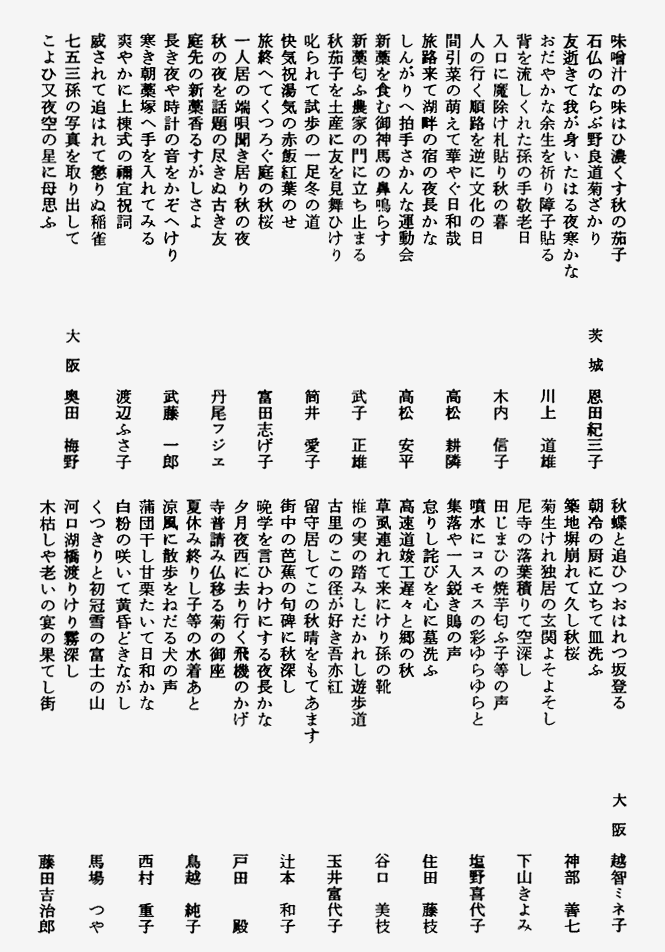 味噌汁の味はひ濃くす秋の茄子
石仏のならぶ野良道菊ざかり　茨城　恩田紀三子
友逝きて我が身いたはる夜寒かな
おだやかな余生を祈り障子貼る　川上　道雄
背を流しくれた孫の手敬老日
入口に魔除け札貼り秋の暮　木内　信子
人の行く順路を逆に文化の日
間引菜の萌えて華やぐ日和哉　高松　耕隣
旅路来て湖畔の宿の夜長かな
しんがりへ拍手さかんな運動会　高松　安平
新藁を食む御神馬の鼻鳴らす
新藁匂ふ農家の門に立ち止まる　武子　正雄
秋茄子を土産に友を見舞ひけり
叱られて試歩の一足冬の道　筒井　愛子
快気祝湯気の赤飯紅葉のせ
旅終へてくつろぐ庭の秋桜　富田志げ子
一人居の端唄聞き居り秋の夜
秋の夜を話題の尽きぬ古き友　丹尾フジヱ
庭先の新藁香るすがしさよ
長き夜や時計の音をかぞへけり　武藤　一郎
寒き朝藁塚へ手を入れてみる
爽やかに上棟式の禰宜祝詞　渡辺ふさ子
威されて追はれて懲りぬ稲雀
七五三孫の写真を取り出して　大阪　奥田　梅野
こよひ又夜空の星に母思ふ
秋蝶と追ひつおはれつ坂登る　大阪　越智ミネ子
朝冷の厨に立ちて皿洗ふ
築地塀崩れて久し秋桜　神部　善七
菊生けれ独居の玄関よそよそし
尼寺の落葉積りて空深し　下山きよみ
田じまひの焼芋匂ふ子等の声
噴水にコスモスの彩ゆらゆらと　塩野喜代子
集落や一入鋭き鵙の声
怠りし詫びを心に墓洗ふ　住田　藤枝
高速道竣工遅々と郷の秋
草虱連れて来にけり孫の靴　谷口　美枝
椎の実の踏みしだかれし遊歩道
古里のこの径が好き吾亦紅　玉井富代子
留守居してこの秋晴をもてあます
街中の芭蕉の句碑に秋深し　辻本　和子
晩学を言ひわけにする夜長かな
夕月夜西に去り行く飛機のかげ　戸田　殿
寺普請み仏移る菊の御座
夏休み終りし子等の水着あと　鳥越　純子
涼風に散歩をねだる犬の声
蒲団干し甘栗たいて日和かな　西村　重子
白粉の咲いて黄昏どきながし
くつきりと初冠雪の富士の山　馬場　つや
河口湖橋渡りけり霧深し
木枯しや老いの宴の果てし街　藤田吉治郎